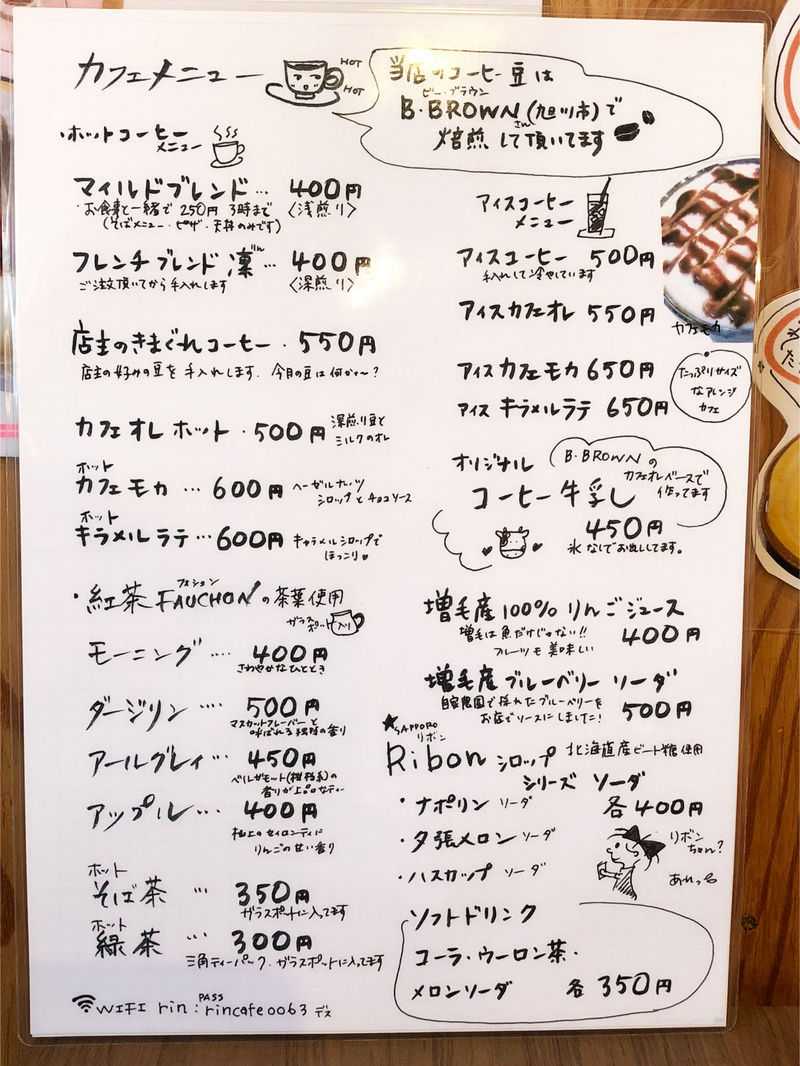 カフェメニュー
HOT
HOT
当店のコーヒー豆は
ビー・ブラウン
B・BROWN(旭川市)で
さん
焙煎して頂いてます
・ホットコーヒー
メニュー
マイルドブレンド… 400円
・お食事と一緒で250円 3時まで
〈浅煎り〉
(そばメニュー・ピザ・天丼のみです)
りん
フレンチブレンド 凜… 400円
ご注文頂いてから手入れします
〈深煎り〉
店主のきまぐれコーヒー・550円
店主の好みの豆を手入れします.今月の豆は何かな~?
カフェオレ ホット・500円
深煎り豆と
ミルクのオレ
ホット
カフェモカ …600円
ヘーゼルナッツ
シロップとチョコソース
ホット
キャラメルラテ…600円
キャラメルシロップで
ほっこり♥
フォション
・紅茶 FAUCHONの茶葉使用
ガラス
ポット入り
モーニング…. 400円
さわやかなひととき
ダージリン…. 500円
マスカットフレーバーと
呼ばれる独特の香り
アールグレイ… 450円
ベルガモット(柑橘系)の
香りが上品なティー
アップル… 400円
極上のセイロンティに
りんごの甘い香り
ホット
そば茶 … 350円
ガラスポートに入ってます
ホット
緑茶 … 300円
三角ティーパック.ガラスポットに入ってます
PASS
WIFI rin:rincafe0063デス
アイスコーヒー
メニュー
アイスコーヒー 500円
手入れして冷やしています
アイスカフェオレ 550円
カフェモカ
アイスカフェモカ 650円
アイス キャラメルラテ 650円
たっぷりサイズ
なアレンジ
カフェ
オリジナル
B・BROWNの
カフェオレベースで
作ってます
コーヒー牛乳し
450円
氷なしでお出ししてます。
増毛産100%りんごジュース
増毛は魚だけじゃない!!
フルーツも美味しい
400円
増毛産ブルーベリー ソーダ
自家農園で採れたブルーベリーを
お店でソースにしました!
500円
★SAPPORO
リボン
Ribon シロップ
北海道産ビート糖使用
シリーズ ソーダ
・ナポリン ソーダ
各400円
・夕張メロン ソーダ
リボン
ちゃん?
・ハスカップ ソーダ
あれっ
ソフトドリンク
コーラ・ウーロン茶・
メロンソーダ 各350円